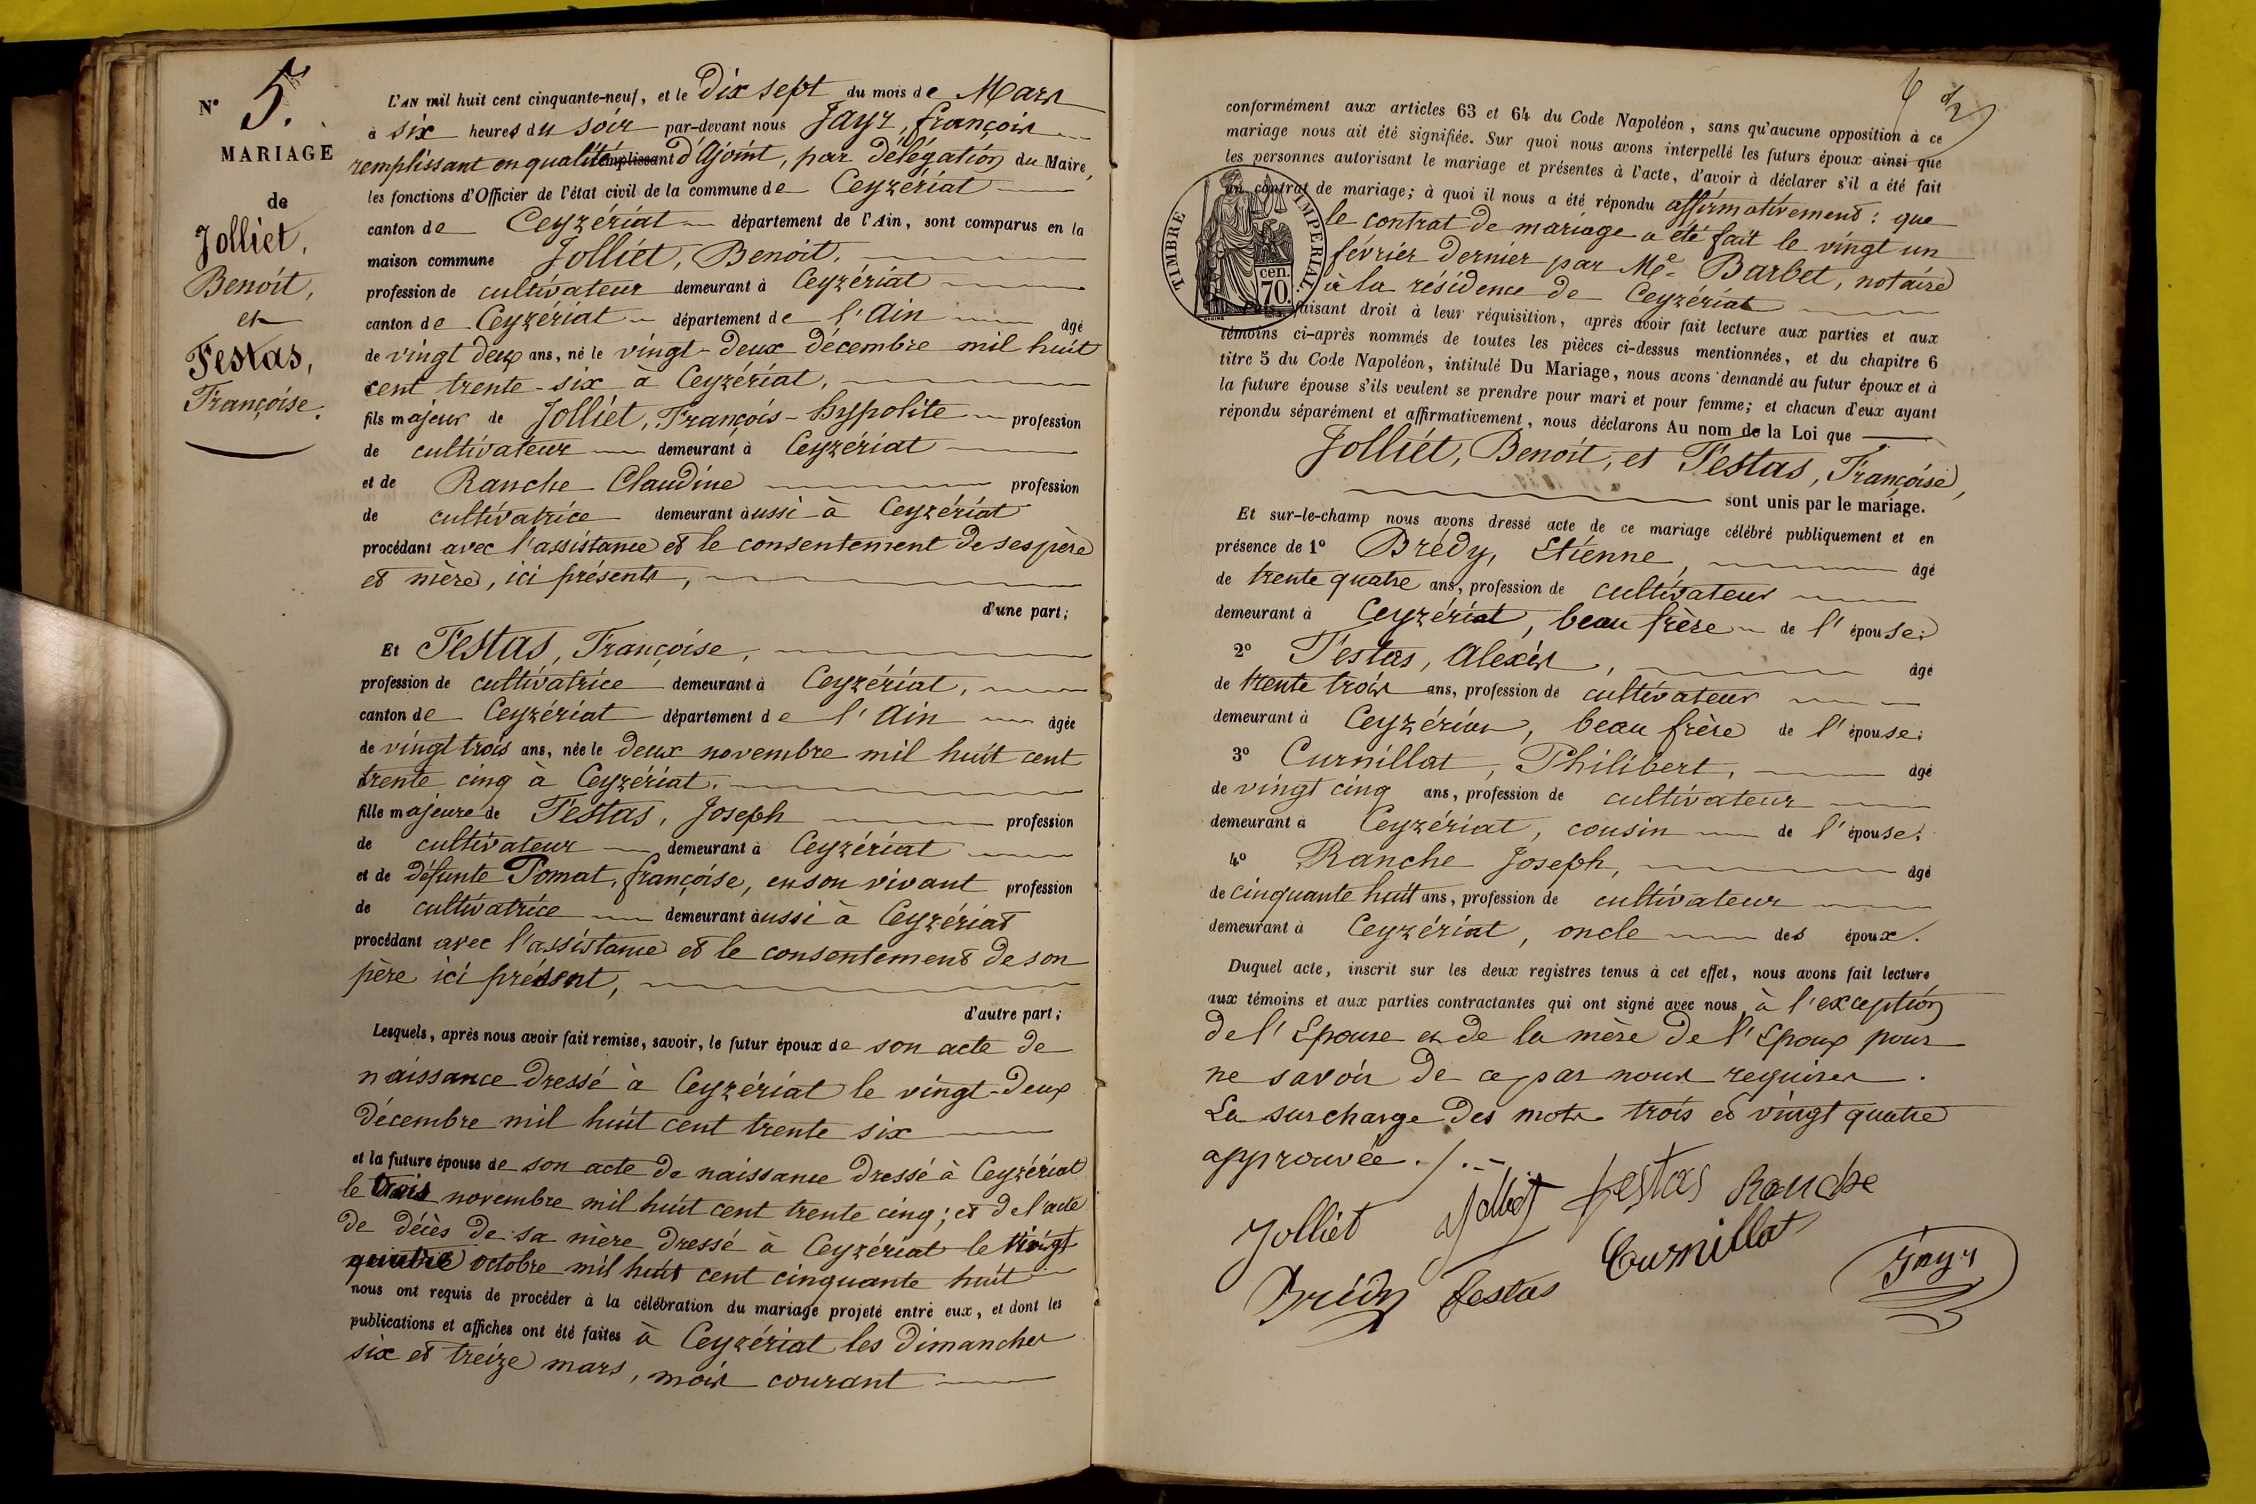 N° 5.
MARIAGE
de
Jolliet,
Benoit,
et
Festas,
Françoise.
L'AN mil huit cent cinquante-neuf, et le Dix sept du mois de Mars
à six heures du soir par-devant nous Jayr, françois
remplissant en qualité remplissant d'Ajoint, par délégation du Maire,
les fonctions d'Officier de l'état civil de la commune de Ceyzériat
canton de Ceyzériat département de l'Ain, sont comparus en la
maison commune Jolliet, Benoit,
profession de cultivateur demeurant à Ceyzériat
canton de Ceyzériat département de l'Ain âgé
de vingt deux ans, né le vingt-deux décembre mil huit
cent trente-six à Ceyzériat,
fils majeur de Jolliet, François-hyppolite profession
de cultivateur demeurant à Ceyzériat
et de Ranche Claudine profession
de cultivatrice demeurant aussi à Ceyzériat
procédant avec l'assistance et le consentement de ses père
et mère, ici présents,
d'une part;
Et Festas, Françoise,
profession de cultivatrice demeurant à Ceyzériat,
canton de Ceyzériat département de l'Ain âgée
de vingt trois ans, née le deux novembre mil huit cent
trente cinq à Ceyzériat.
fille majeure de Festas, Joseph profession
de cultivateur demeurant à Ceyzériat
et de défunte Pomat, françoise, en son vivant profession
de cultivatrice demeurant aussi à Ceyzériat
procédant avec l'assistance et le consentement de son
père ici présent,
d'autre part;
Lesquels, après nous avoir fait remise, savoir, le futur époux de son acte de
naissance dressé à Ceyzériat le vingt-deux
décembre mil huit cent trente six
et la future épouse de son acte de naissance dressé à Ceyzériat
le trois novembre mil huit cent trente cinq; et de l'acte
de décès de sa mère dressé à Ceyzériat le vingt
quatre octobre mil huit cent cinquante huit
nous ont requis de procéder à la célébration du mariage projeté entre eux, et dont les
publications et affiches ont été faites à Ceyzériat les dimanches
six et treize mars, mois courant
conformément aux articles 63 et 64 du Code Napoléon, sans qu'aucune opposition à ce
mariage nous ait été signifiée. Sur quoi nous avons interpellé les futurs époux ainsi que
les personnes autorisant le mariage et présentes à l'acte, d'avoir à déclarer s'il a été fait
un contrat de mariage; à quoi il nous a été répondu affirmativement: que
le contrat de mariage a été fait le vingt un
février dernier par Me. Barbet, notaire
à la résidence de Ceyzériat
TIMBRE IMPERIAL.
cen.
70.
faisant droit à leur réquisition, après avoir fait lecture aux parties et aux
témoins ci-après nommés de toutes les pièces ci-dessus mentionnées, et du chapitre 6
titre 5 du Code Napoléon, intitulé Du Mariage, nous avons demandé au futur époux et à
la future épouse s'ils veulent se prendre pour mari et pour femme; et chacun d'eux ayant
répondu séparément et affirmativement, nous déclarons Au nom de la Loi que
Jolliet, Benoit, et Festas, Françoise,
sont unis par le mariage.
Et sur-le-champ nous avons dressé acte de ce mariage célébré publiquement et en
présence de 1° Brédy, Etienne, âgé
de trente quatre ans, profession de cultivateur
demeurant à Ceyzériat, beau frère de l'épouse;
2° Festas, Alexis, âgé
de trente trois ans, profession de cultivateur
demeurant à Ceyzériat, beau frère de l'épouse;
3° Curnillat, Philibert, âgé
de vingt cinq ans, profession de cultivateur
demeurant à Ceyzériat, cousin de l'épouse;
4° Ranche Joseph, âgé
de cinquante huit ans, profession de cultivateur
demeurant à Ceyzériat, oncle des époux.
Duquel acte, inscrit sur les deux registres tenus à cet effet, nous avons fait lecture
aux témoins et aux parties contractantes qui ont signé avec nous, à l'exception
de l'Epouse et de la mère de l'Epoux pour
ne savoir de ce par nous requises.
La surcharge des mots trois et vingt quatre
approuvée ./.-
Jolliet Jolliet festas Ranche
Brédy festas Curnillat Jayr